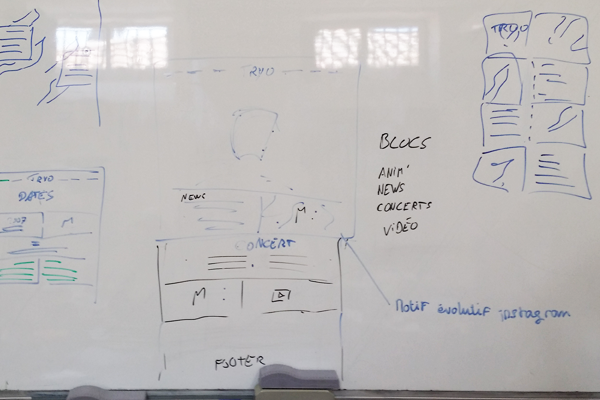 TRYO
DATES
M
TRYO
NEWS
M:
CONCERT
M:
FOOTER
BLOCS
ANIM'
NEWS
CONCERTS
VIDÉO
Motif évolutif instagram
TRYO